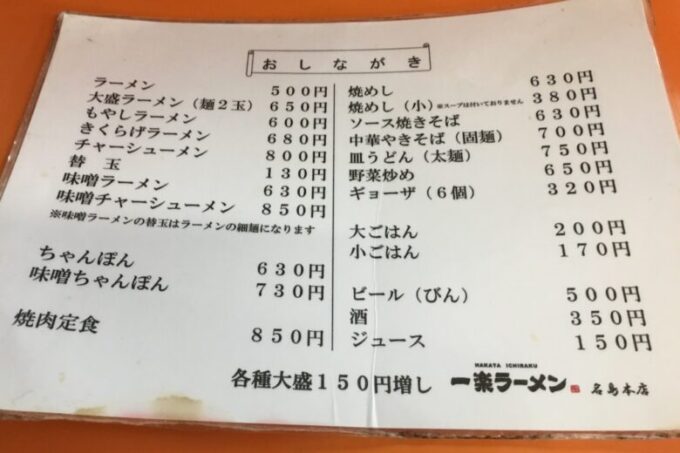 おしながき
ラーメン 500円
大盛ラーメン（麺2玉） 650円
もやしラーメン 600円
きくらげラーメン 680円
チャーシューメン 800円
替玉 130円
味噌ラーメン 630円
味噌チャーシューメン 850円
※味噌ラーメンの替玉はラーメンの細麺になります
ちゃんぽん 630円
味噌ちゃんぽん 730円
焼肉定食 850円
焼めし 630円
焼めし（小）※スープは付いておりません 380円
ソース焼きそば 630円
中華やきそば（固麺） 700円
皿うどん（太麺） 750円
野菜炒め 650円
ギョーザ（6個） 320円
大ごはん 200円
小ごはん 170円
ビール（びん） 500円
酒 350円
ジュース 150円
各種大盛150円増し
HAKATA ICHIRAKU
一楽ラーメン 名島本店